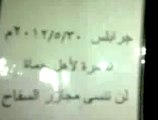 جرابلس ٢٠١٢/٥/٣٠م
نصرة لأهل حماة
لن ننسى مجازر السفاح